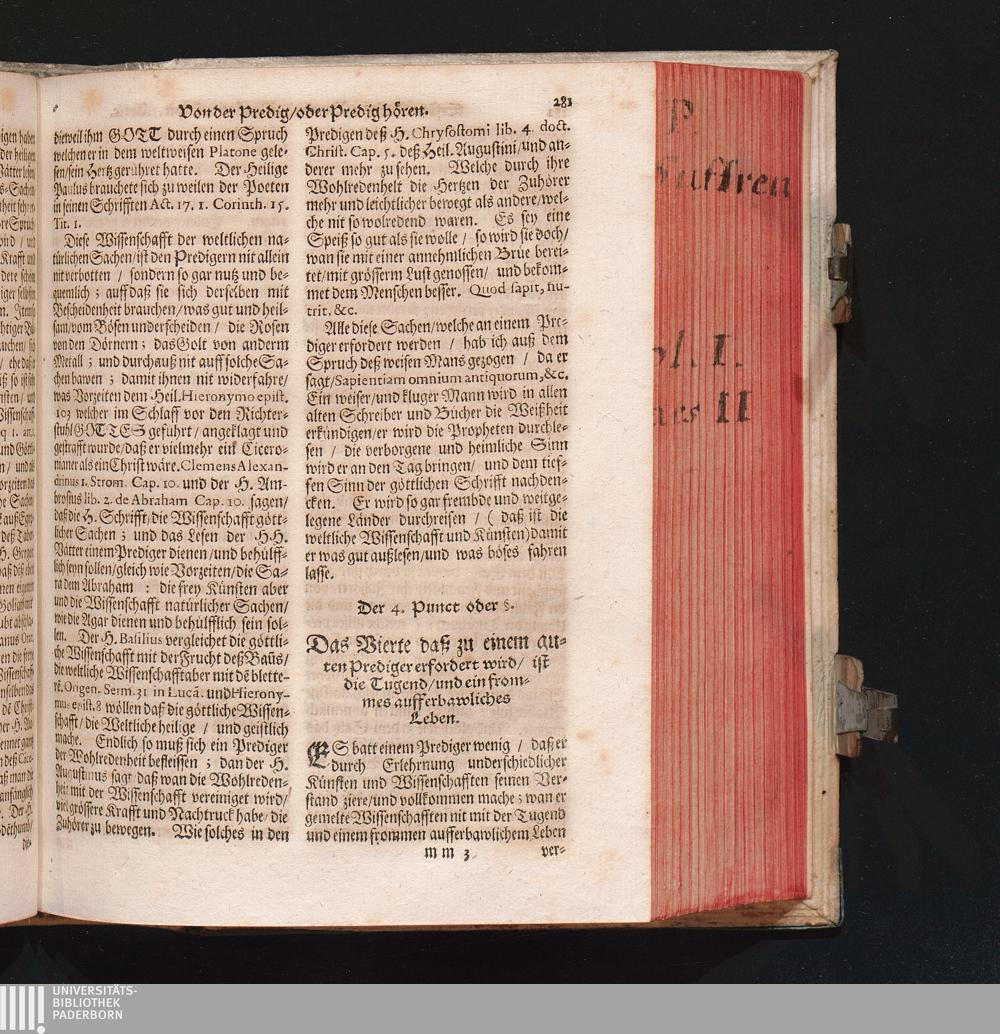 Von der Predig/oder Predig hören.
281
dieweil ihm GOTT durch einen Spruch
welchen er in dem weltweisen Platone gele-
sen/sein Hertz gerühret hatte. Der Heilige
Paulus brauchete sich zu weilen der Poeten
in seinen Schrifften Act. 17. 1. Corinth. 15.
Tit. 1.
Diese Wissenschafft der weltlichen na-
türlichen Sachen/ist den Predigern nit allein
nit verbotten / sondern so gar nutz und be-
quemlich ; auff daß sie sich derselben mit
Bescheidenheit brauchen/was gut und heil-
sam/vom Bösen underscheiden / die Rosen
von den Dörnern ; das Golt von anderm
Metall ; und durchauß nit auff solche Sa-
chen bawen ; damit ihnen nit widerfahre/
was Vorzeiten dem Heil. Hieronymo epist.
103 welcher im Schlaff vor den Richter-
stuhl GOTTES geführt / angeklagt und
gestrafft wurde/daß er vielmehr ein Cicero-
nianer als ein Christ wäre. Clemens Alexan-
drinus 1. Strom. Cap. 10. und der H. Am-
brosius lib. 2. de Abraham Cap. 10. sagen/
daß die H. Schrifft/die Wissenschafft gött-
licher Sachen ; und das Lesen der H.H.
Vätter einem Prediger dienen/und behülff-
lich seyn sollen/gleich wie Vorzeiten/die Sa-
ra dem Abraham : die frey Künsten aber
und die Wissenschafft natürlicher Sachen/
wie die Agar dienen und behülfflich sein sol-
len. Der H. Basilius vergleichet die göttli-
che Wissenschafft mit der Frucht deß Baūs/
die weltliche Wissenschafft aber mit dē blette-
rē. Origen. Serm. 31 in Lucā. und Hierony-
mus epist. 8 wöllen daß die göttliche Wissen-
schafft / die Weltliche heilige / und geistlich
mache. Endlich so muß sich ein Prediger
der Wohlredenheit befleissen ; dan der H.
Augustinus sagt daß wan die Wohlreden-
heit mit der Wissenschafft vereiniget wird/
viel grössere Krafft und Nachtruck habe / die
Zuhörer zu bewegen. Wie solches in den
Predigen deß H. Chrysostomi lib. 4. doct.
Christ. Cap. 5. deß Heil. Augustini/und an-
derer mehr zu sehen. Welche durch ihre
Wohlredenheit die Hertzen der Zuhörer
mehr und leichtlicher bewegt als andere/wel-
che nit so wolredend waren. Es sey eine
Speiß so gut als sie wolle / so wird sie doch/
wan sie mit einer annehmlichen Brüe berei-
tet/mit grösserm Lust genossen/ und bekom-
met dem Menschen besser. Quod sapit, nu-
trit. &c.
Alle diese Sachen/welche an einem Pre-
diger erfordert werden / hab ich auß dem
Spruch deß weisen Mans gezogen / da er
sagt/Sapientiam omnium antiquorum, &c.
Ein weiser/und kluger Mann wird in allen
alten Schreiber und Bücher die Weißheit
erkündigen/er wird die Propheten durchle-
sen / die verborgene und heimliche Sinn
wird er an den Tag bringen/ und dem tief-
fen Sinn der göttlichen Schrifft nachden-
cken. Er wird so gar frembde und weitge-
legene Länder durchreisen / ( daß ist die
weltliche Wissenschafft und Künsten) damit
er was gut außlesen/und was böses fahren
lasse.
Der 4. Punct oder §.
Das Vierte daß zu einem gu-
ten Prediger erfordert wird/ ist
die Tugend/und ein from-
mes aufferbawliches
Leben.
ES batt einem Prediger wenig / daß er
durch Erlehrnung underschiedlicher
Künsten und Wissenschafften seinen Ver-
stand ziere/und vollkommen mache ; wan er
gemelte Wissenschafften nit mit der Tugend
und einem frommen aufferbawlichem Leben
mm 3
ver-
P.
Suffren
ol. I.
ars II
UNIVERSITÄTS-
BIBLIOTHEK
PADERBORN